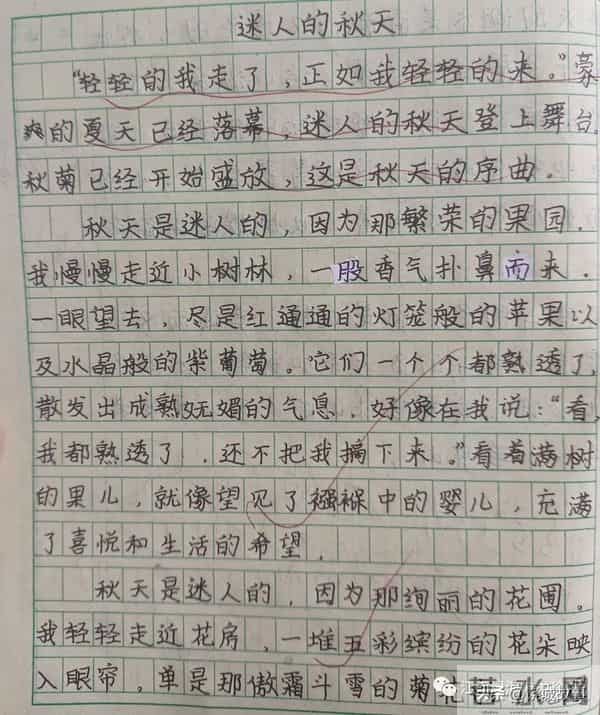 迷人的秋天
“轻轻的我走了，正如我轻轻的来。”豪
爽的夏天已经落幕，迷人的秋天登上舞台，
秋菊已经开始盛放，这是秋天的序曲．
秋天是迷人的，因为那繁荣的果园．
我慢慢走近小树林，一股香气扑鼻而来．
一眼望去，尽是红通通的灯笼般的苹果以
及水晶般的紫葡萄。它们一个个都熟透了，
散发出成熟妩媚的气息，好像在我说：“看，
我都熟透了．还不把我摘下来。”看着满树
的果儿，就像望见了襁褓中的婴儿，充满
了喜悦和生活的希望．
秋天是迷人的，因为那绚丽的花圃。
我轻轻走近花房，一堆五彩缤纷的花朵映
入眼帘，单是那傲霜斗雪的菊花